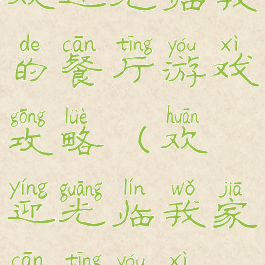 欢迎光临我
de cān tīng yóu xì
的餐厅游戏
gōng lüè huān
攻略（欢
yíng guāng lín wǒ jiā
迎光临我家
cān tīng yóu xì